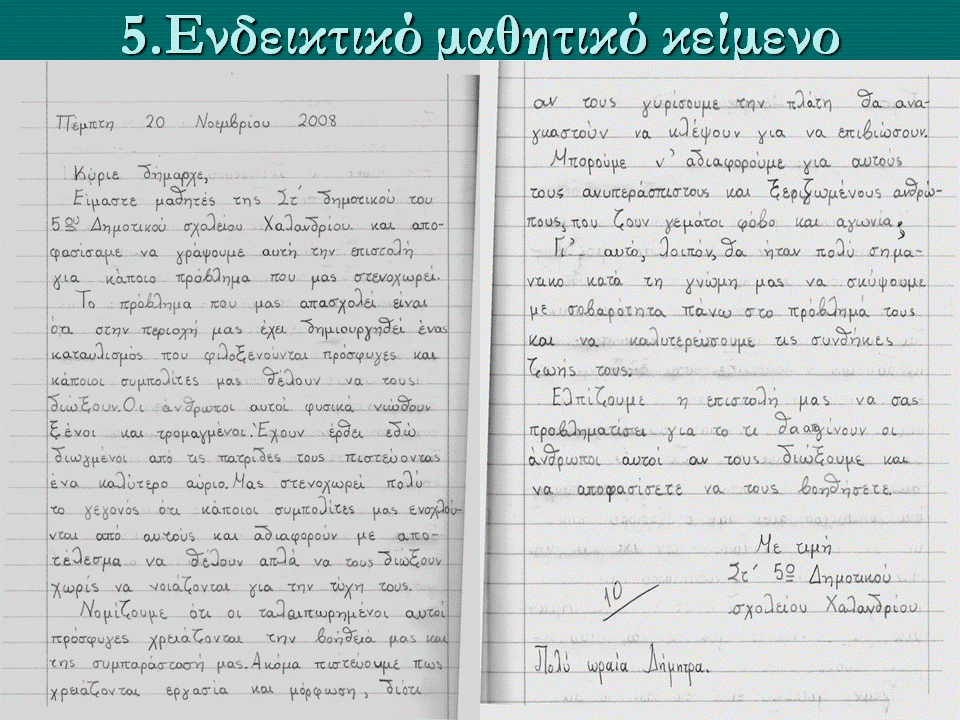 5.Ενδεικτικό μαθητικό κείμενο
Πέμπτη 20 Νοεμβρίου 2008
Κύριε δήμαρχε,
Είμαστε μαθητές της Στ΄ δημοτικού του
5ου Δημοτικού σχολείου Χαλανδρίου και απο-
φασίσαμε να γράψουμε αυτή την επιστολή
για κάποιο πρόβλημα που μας στενοχωρεί.
Το πρόβλημα που μας απασχολεί είναι
ότι στην περιοχή μας έχει δημιουργηθεί ένας
καταυλισμός που φιλοξενούνται πρόσφυγες και
κάποιοι συμπολίτες μας θέλουν να τους
διώξουν. Οι άνθρωποι αυτοί φυσικά νιώθουν
ξένοι και τρομαγμένοι. Έχουν έρθει εδώ
διωγμένοι από τις πατρίδες τους πιστεύοντας
ένα καλύτερο αύριο. Μας στενοχωρεί πολύ
το γεγονός ότι κάποιοι συμπολίτες μας ενοχλού-
νται από αυτούς και αδιαφορούν με απο-
τέλεσμα να θέλουν απλά να τους διώξουν
χωρίς να νοιάζονται για την τύχη τους.
Νομίζουμε ότι οι ταλαιπωρημένοι αυτοί
πρόσφυγες χρειάζονται την βοήθειά μας και
της συμπαράστασή μας. Ακόμα πιστεύουμε πως
χρειάζονται εργασία και μόρφωση, διότι
αν τους γυρίσουμε την πλάτη θα ανα-
γκαστούν να κλέψουν για να επιβιώσουν.
Μπορούμε ν' αδιαφορούμε για αυτούς
τους ανυπεράσπιστους και ξεριζωμένους ανθρώ-
πους, που ζουν γεμάτοι φόβο και αγωνία;
Γι' αυτό, λοιπόν, θα ήταν πολύ σημα-
ντικο κατά τη γνώμη μας να σκύψουμε
με σοβαρότητα πάνω στο πρόβλημά τους
και να καλυτερεύσουμε τις συνθήκες
ζωής τους.
Ελπίζουμε η επιστολή μας να σας
προβληματίσει για το τι θα απογίνουν οι
άνθρωποι αυτοί αν τους διώξουμε και
να αποφασίσετε να τους βοηθήσετε.
Με τιμή
Στ΄ 5ο Δημοτικού
σχολείου Χαλανδρίου
10
Πολύ ωραία Δήμητρα.